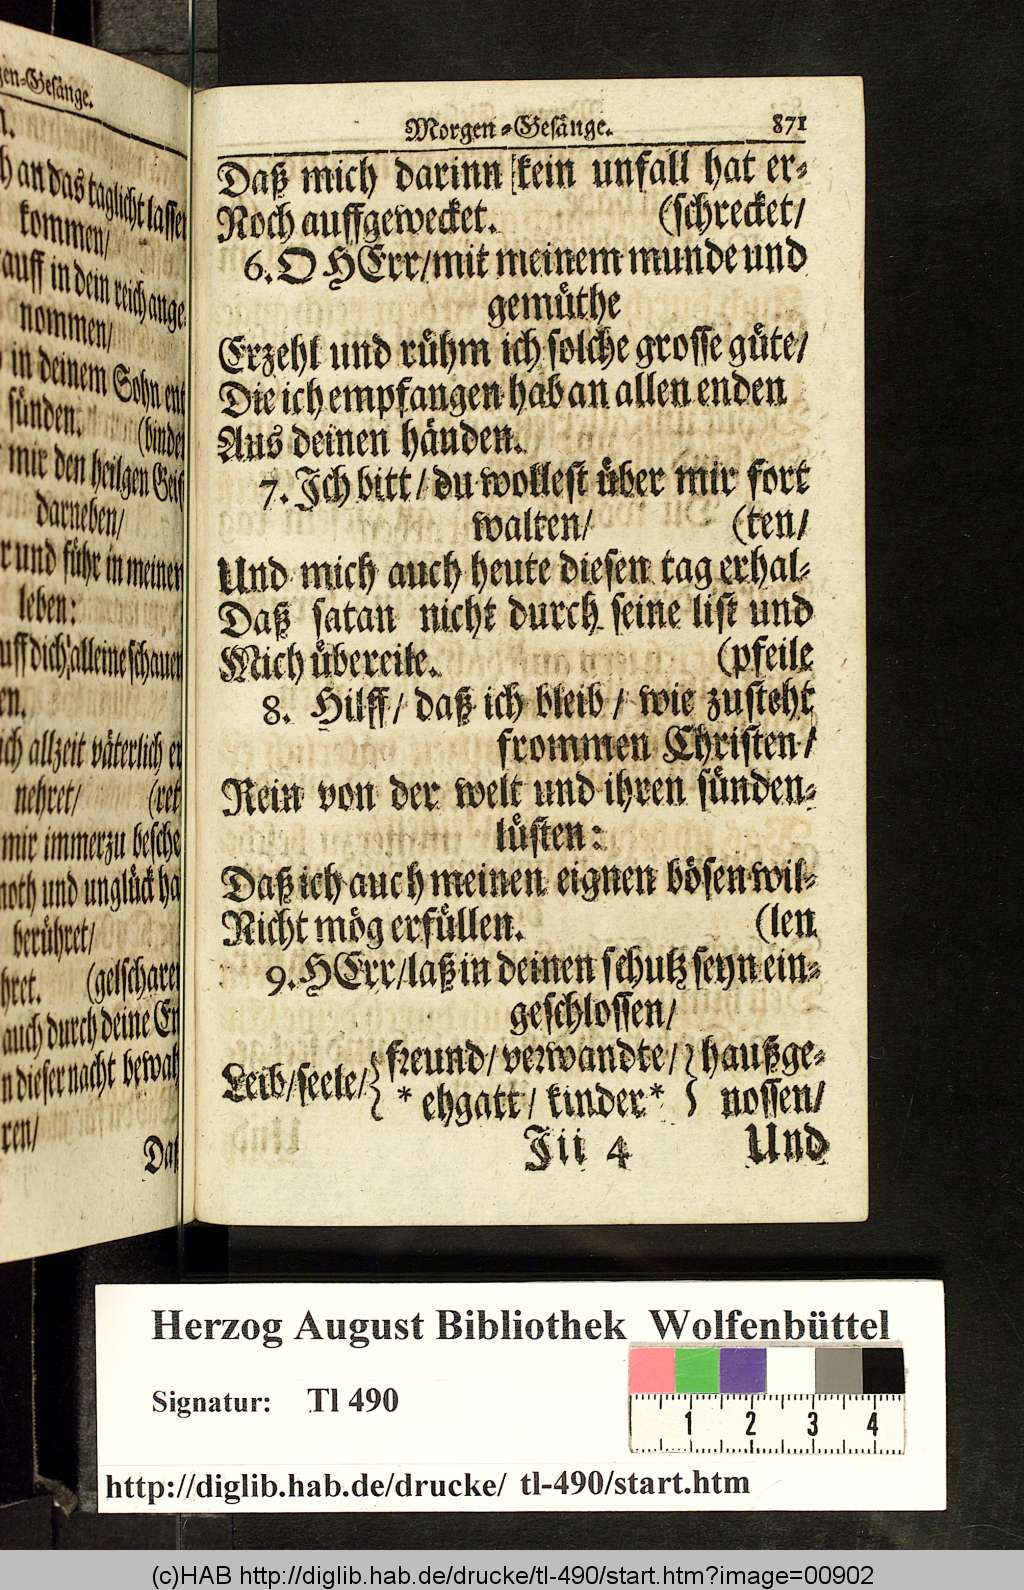 gen-Gesänge.
an das taglicht lassen
kommen/
auff in dein reich ange-
nommen/
in deinem Sohn ent
sünden. (binde
mir den heilgen Geist
darneben/
und führ in meinem
leben:
auff dich alleine schauen
allzeit väterlich er
nehret/ (ret
mir immerzu besche
noth und unglück ha
berühret/
(gelscharen
auch durch deine En
dieser nacht bewah
ren/
Daß
Morgen-Gesänge. 871
Daß mich darinn kein unfall hat er-
Noch auffgewecket. (schrecket/
6. O HErr/mit meinem munde und
gemüthe
Erzehl und rühm ich solche grosse güte/
Die ich empfangen hab an allen enden
Aus deinen händen.
7. Ich bitt/ du wollest über mir fort
walten/ (ten/
Und mich auch heute diesen tag erhal-
Daß satan nicht durch seine list und
Mich übereile. (pfeile
8. Hilff/ daß ich bleib/ wie zusteht
frommen Christen/
Rein von der welt und ihren sünden-
lüsten:
Daß ich auch meinen eignen bösen wil-
Nicht mög erfüllen. (len
9. HErr/laß in deinen schutz seyn ein-
geschlossen/
Leib/seele/ { freund/ verwandte/ } haußge-
* ehgatt/ kinder* nossen/
Jii 4 Und
Herzog August Bibliothek Wolfenbüttel
Signatur: Tl 490
1 2 3 4
http://diglib.hab.de/drucke/ tl-490/start.htm
(c)HAB http://diglib.hab.de/drucke/tl-490/start.htm?image=00902